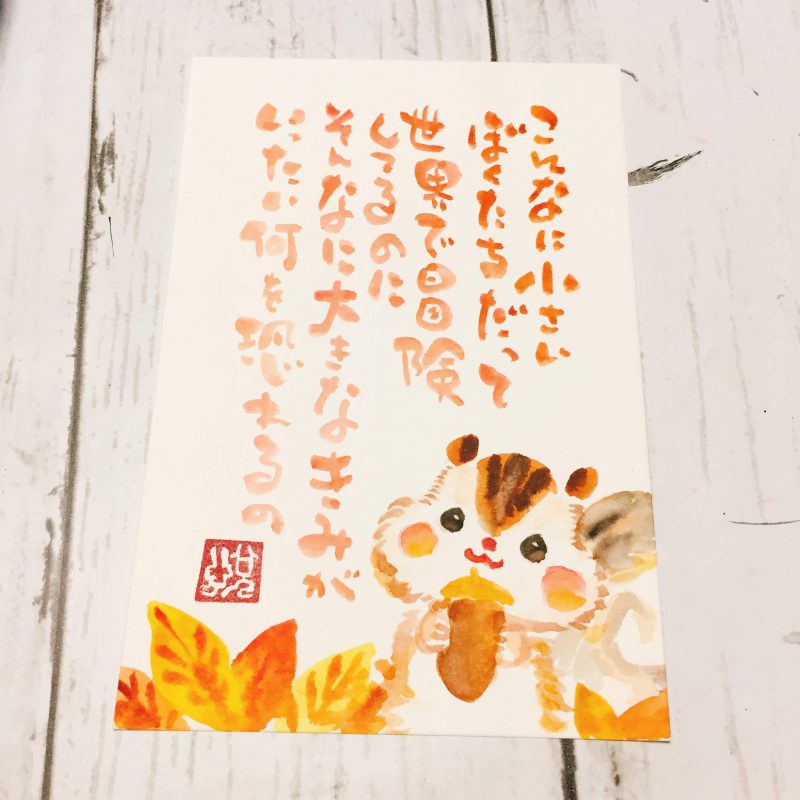 こんなに小さい
ぼくたちだって
世界で冒険
してるのに
そんなに大きなきみが
いったい何を恐れるの